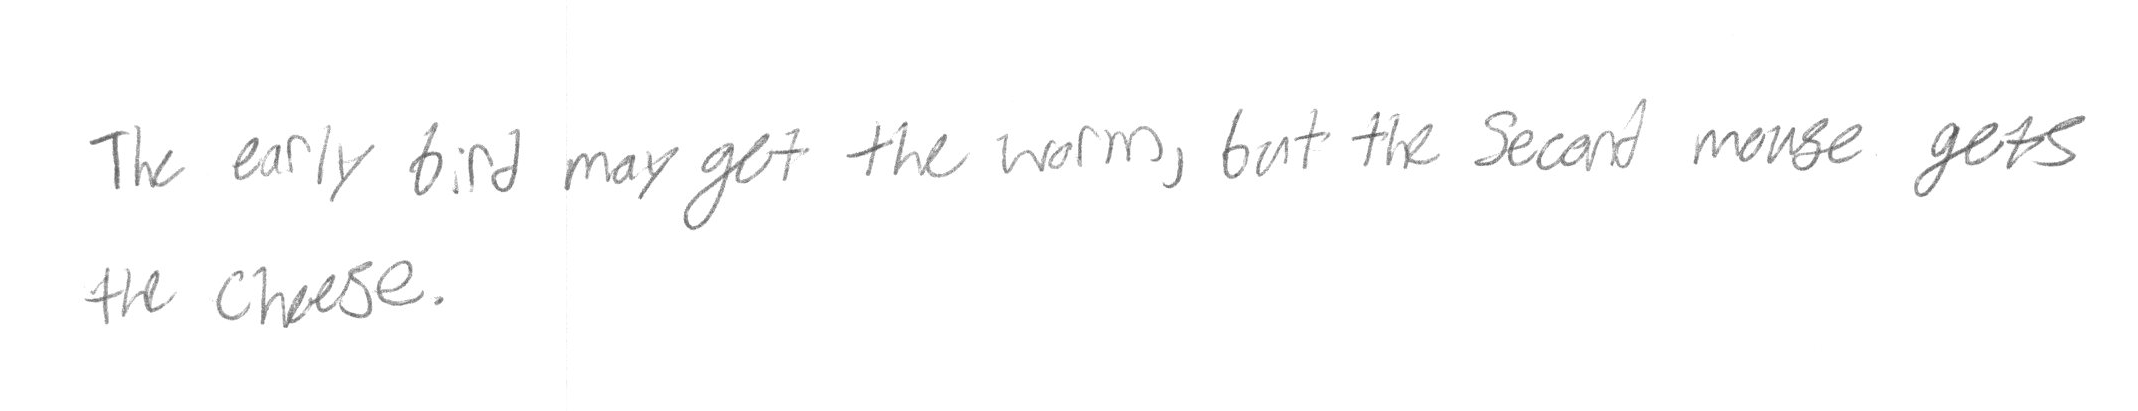 The early bird may get the worm, but the Second mouse gets
the cheese.